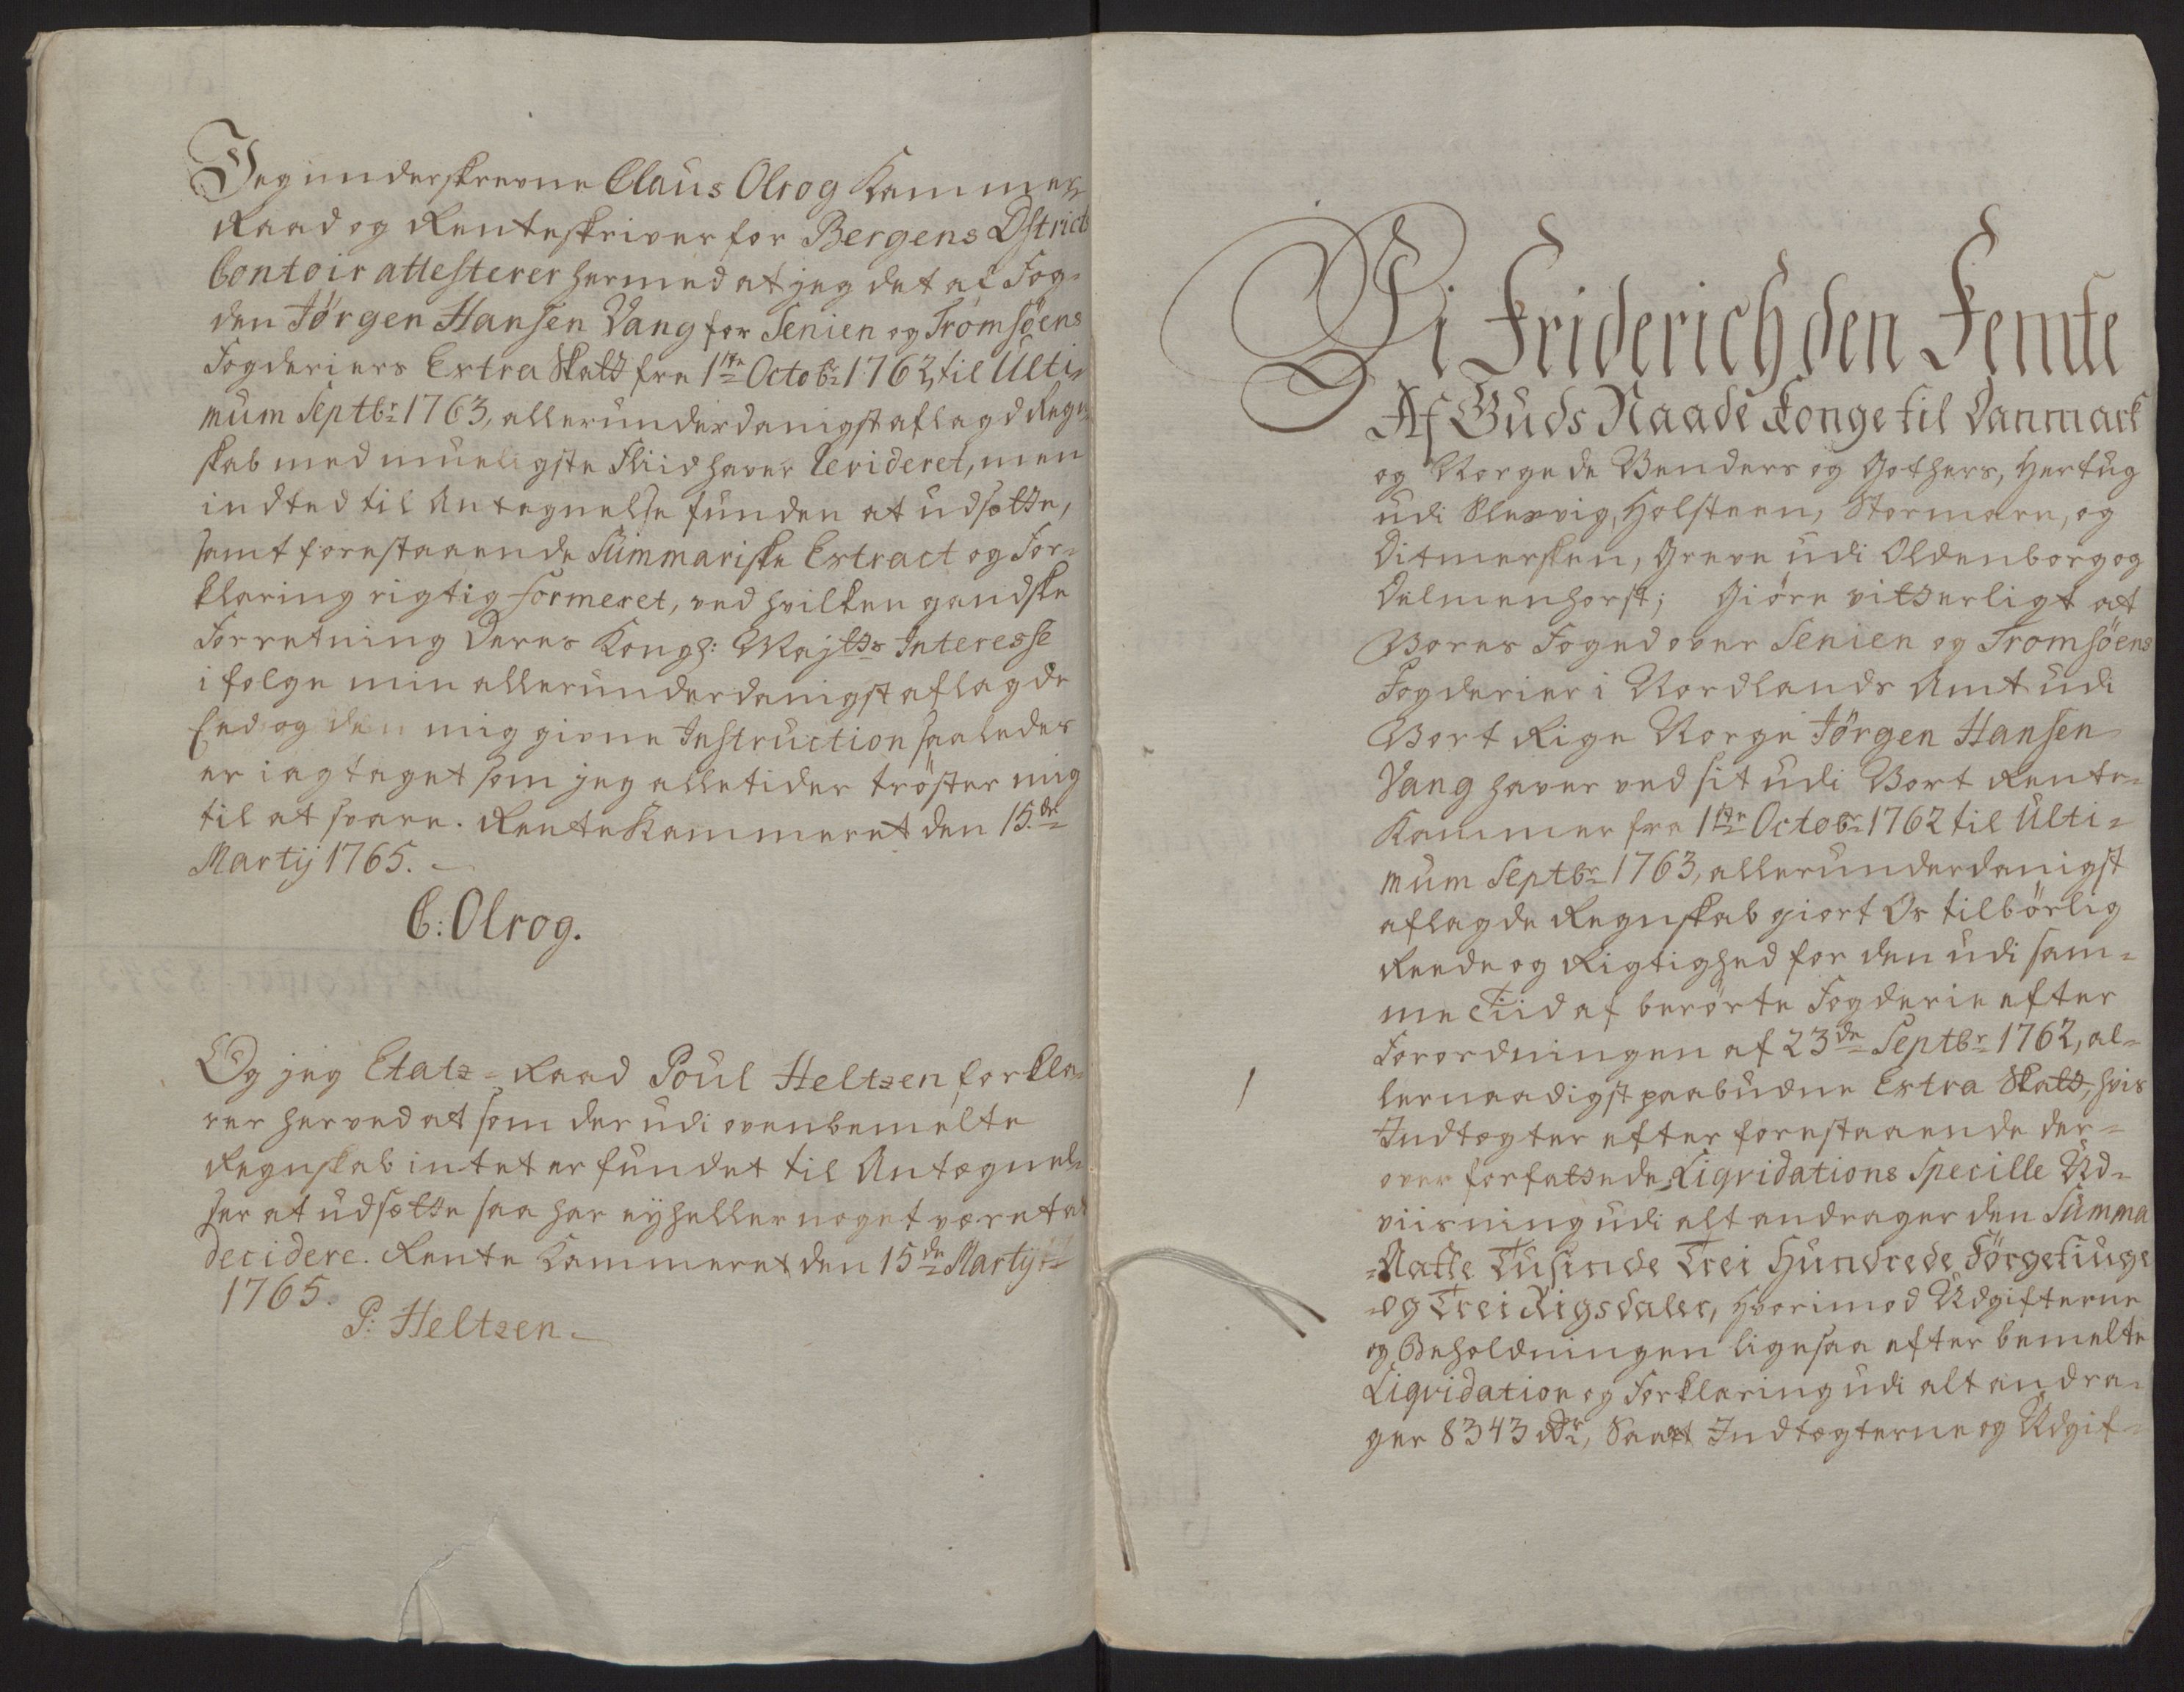 Jeg underskrevne Claus Olrog Kammer-
Raad og Renteskriver for Bergens Dstricts
Contoir attesterer hermed at jeg det af Fog-
den Jørgen Hansen Vang for Senien og Tromsøens
Fogderiers Extra Skatt fra 1ste Octobr 1762, til Ulti-
mum Septbr 1763, allerunderdanigst aflagde Regn-
skab med mueligste Fliid haver Revideret, men
indted til Antegnelse funden at udsætte,
samt forestaaende Summariske Extract og For-
klaring rigtig formeret, ved hvilken gandske
Forretning Deres Kongl: Majtts Interesse
i følge min allerunderdanigst aflagde
Eed og den mig givne Instruction saaledes
er iagtaget som jeg alletider trøster mig
til at svare. RenteKammeret den 15de
Martij 1765.
C: Olrog.
Og jeg Etatz-Raad Poul Heltzen forkla-
rer herved at som der udi ovenbemelte
Regnskab intet er fundet til Antægnel-
ser at udsætte saa har ey heller noget været at
decidere. Rente Kammeret den 15de Martij
1765.
P: Heltzen
Vi Friderich den Femte
Af Guds Naade Konge til Danmark
og Norge de Venders og Gothers, Hertug
udi Slesvig, Holsteen, Stormarn, og
Ditmersken, Greve udi Oldenborg og
Delmenhorst; Giøre vitterligt at
Vores Foged over Senien og Tromsøens
Fogderier i Nordlands Amt udi
Vort Rige Norge Jørgen Hansen
Vang haver ved sit udi Vort Rente-
Kammer fra 1ste Octobr 1762 til Ulti-
mum Septbr 1763, allerunderdanigst
aflagde Regnskab giort Os tilbørlig
Reede og Rigtighed for den udi sam-
me Tiid af berørte Fogderie efter
Forordningen af 23de Septbr 1762, al-
lernaadigst paabudne Extra Skatt, hvis
Indtægter efter forestaaende der-
over forfattede Liqvidations Specille Ud-
viisning udi alt andrager den Summa
-Aatte Tusinde Trei Hundrede Førgetiuge
-og Trei Rigsdaler, hvorimod Udgifterne
og Beholdningen ligesaa efter bemelte
Liqvidation og Forklaring udi alt andra-
ger 8343 Rdr, Saa at Indtægterne og Udgif-